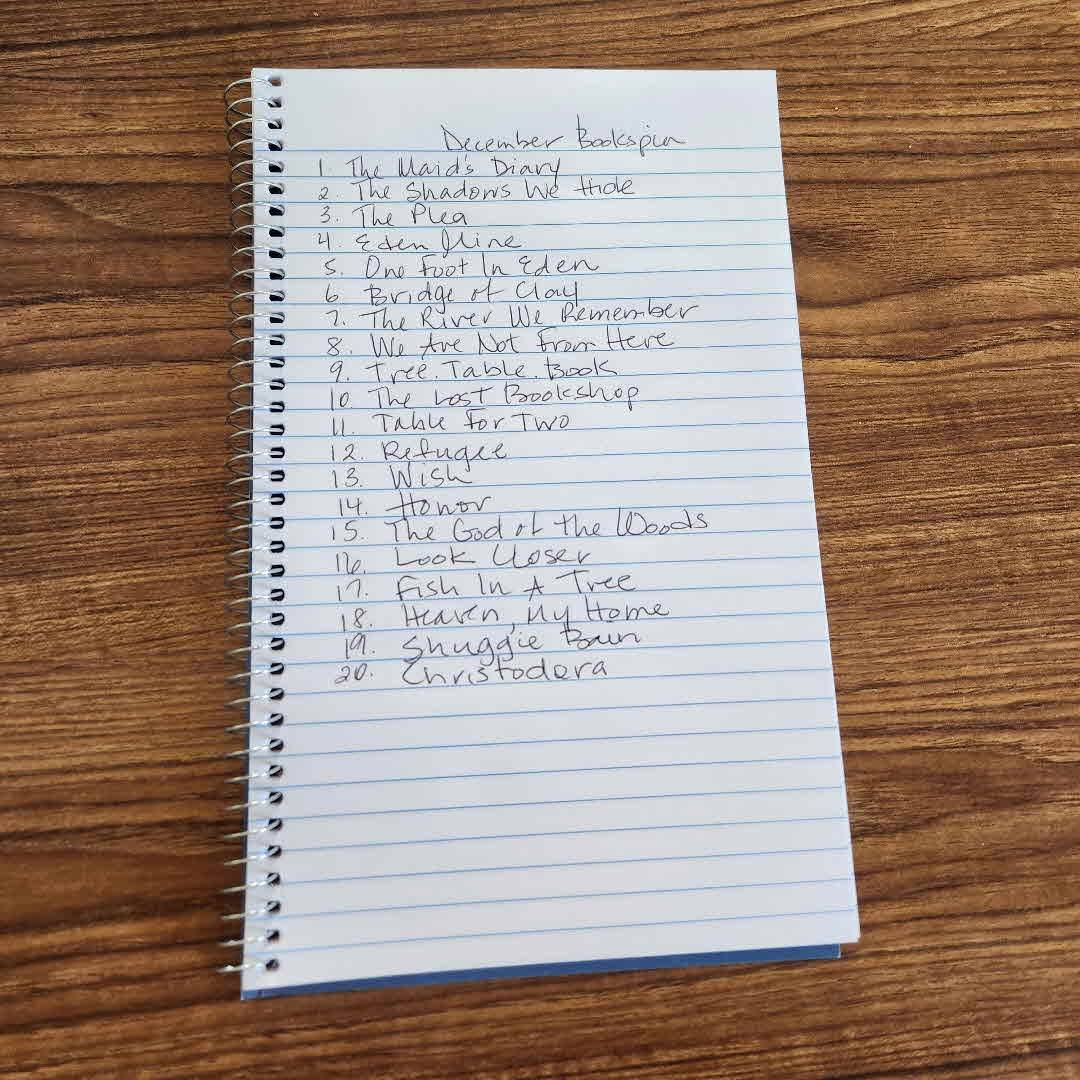 December Bookspin
1. The Maid's Diary
2. The Shadows We Hide
3. The Plea
4. Eden Mine
5. One Foot In Eden
6. Bridge of Clay
7. The River We Remember
8. We Are Not From Here
9. Tree. Table. Book
10. The Lost Bookshop
11. Table For Two
12. Refugee
13. Wish
14. Honor
15. The God of the Woods
16. Look Closer
17. Fish In A Tree
18. Heaven, My Home
19. Shuggie Bain
20. Christodora